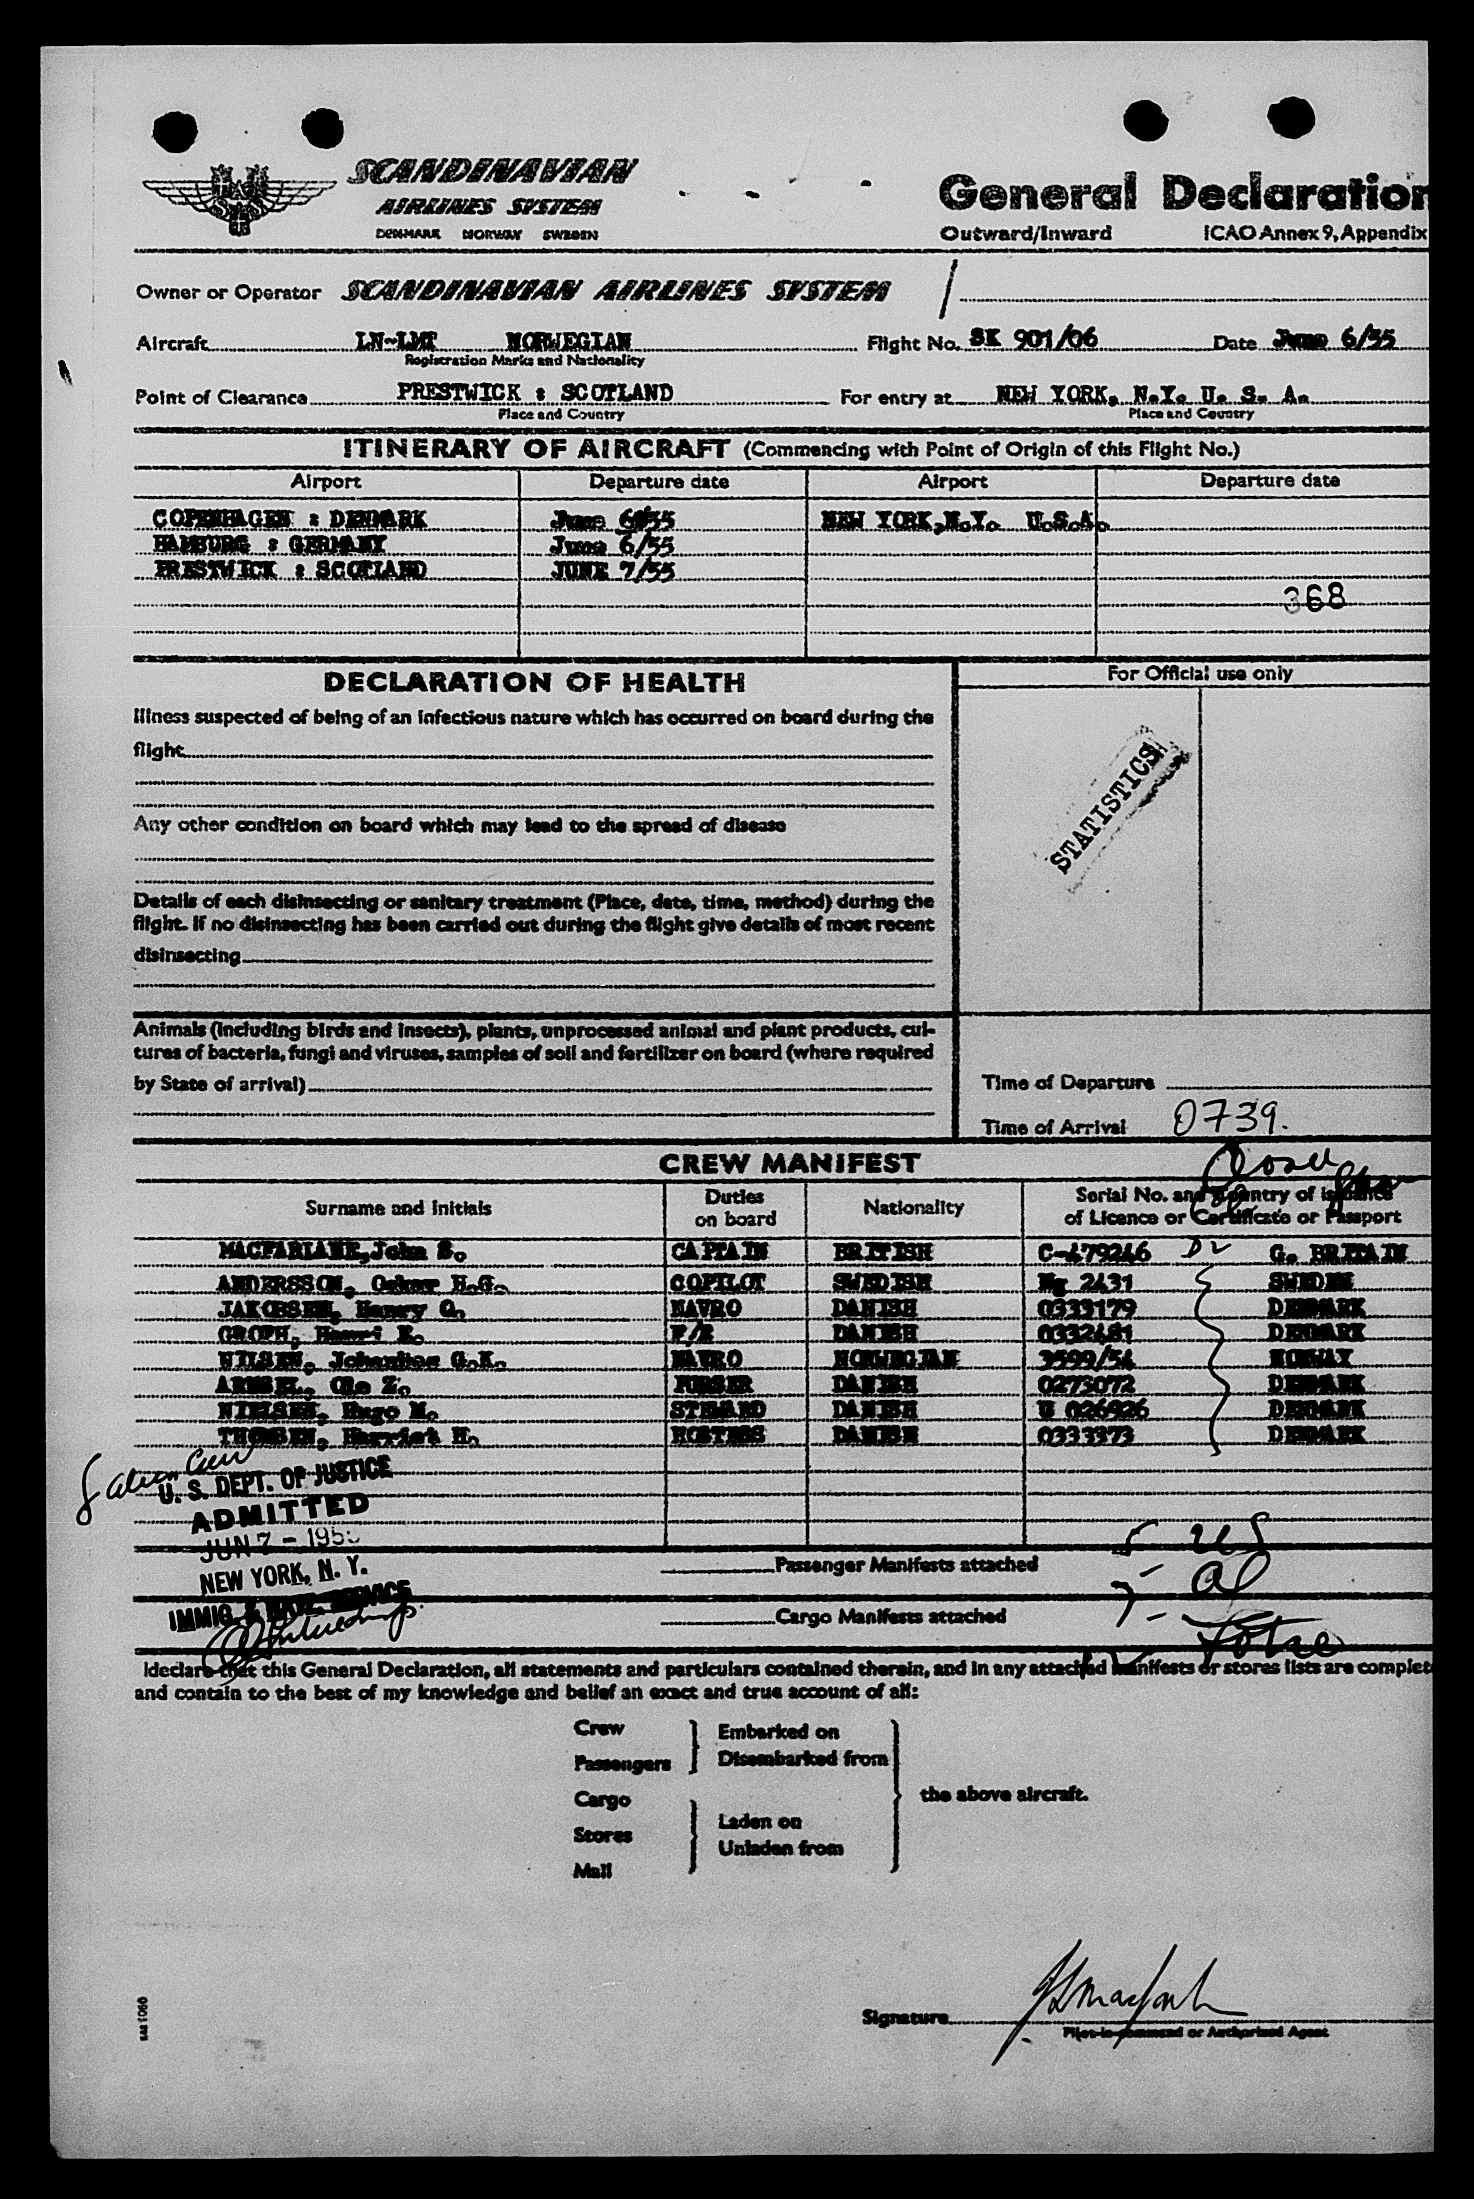 SCANDINAVIAN
AIRLINES SYSTEM
DENMARK NORWAY SWEDEN
General Declaration
Outward/Inward ICAO Annex 9, Appendix
Owner or Operator SCANDINAVIAN AIRLINES SYSTEM
Aircraft LN-LMT NORWEGIAN Flight No. SK 901/06 Date June 6/55
Registration Marks and Nationality
Point of Clearance PRESTWICK : SCOTLAND For entry at NEW YORK, N.Y. U. S. A.
Place and Country Place and Country
ITINERARY OF AIRCRAFT (Commencing with Point of Origin of this Flight No.)
Airport Departure date Airport Departure date
COPENHAGEN : DENMARK June 6/55 NEW YORK,N.Y. U.S.A.
HAMBURG : GERMANY June 6/55
PRESTWICK : SCOTLAND JUNE 7/55
368
DECLARATION OF HEALTH
For Official use only
Illness suspected of being of an infectious nature which has occurred on board during the
flight
STATISTICS
Any other condition on board which may lead to the spread of disease
Details of each disinsecting or sanitary treatment (Place, date, time, method) during the
flight. If no disinsecting has been carried out during the flight give details of most recent
disinsecting
Animals (including birds and insects), plants, unprocessed animal and plant products, cul-
tures of bacteria, fungi and viruses, samples of soil and fertilizer on board (where required
by State of arrival)
Time of Departure
Time of Arrival 0739.
CREW MANIFEST
Surname and initials Duties on board Nationality Serial No. and Country of issuance of Licence or Certificate or Passport
MACFARLANE, John S. CAPTAIN BRITISH C-479246 D2 G. BRITAIN
ANDERSSON, Oskar H.G. COPILOT SWEDISH Ng 2431 SWEDEN
JAKOBSEN, Henry O. NAVRO DANISH 0333179 DENMARK
GROTH, Henri E. F/E DANISH 0332481 DENMARK
NILSEN, Johannes G.K. NAVRO NORWEGIAN 3599/54 NORWAY
Ole Z. PURSER DANISH 0273072 DENMARK
NIELSEN, Hugo M. STEWARD DANISH U 026926 DENMARK
THOMSEN, Harriet H. HOSTESS DANISH 0333373 DENMARK
8 alien Crew
U. S. DEPT. OF JUSTICE
ADMITTED
JUN 7 - 195
NEW YORK, N. Y.
IMMIG. & NATZ. SERVICE
5 - US
Passenger Manifests attached
7 - al
Cargo Manifests attached
Total
I declare that this General Declaration, all statements and particulars contained therein, and in any attached manifests or stores lists are complete
and contain to the best of my knowledge and belief an exact and true account of all:
Crew
Passengers
Embarked on
Disembarked from
Cargo
Stores
Mail
Laden on
Unladen from
the above aircraft.
Signature
Pilot-in-command or Authorized Agent